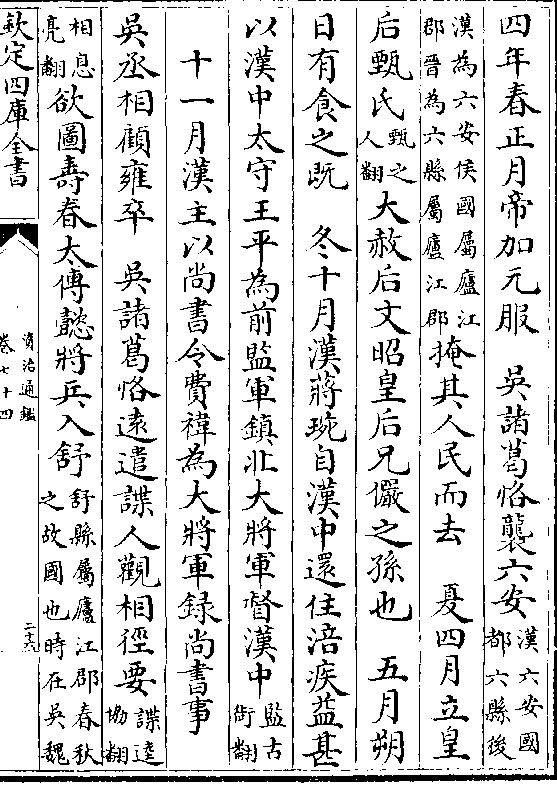 四年春正月帝加元服　吳諸葛恪襲六安漢六安國都六縣後
漢為六安侯國屬廬江郡晉為六縣屬廬江郡掩其人民而去　夏四月立皇
后甄氏甄之人翻大赦后文昭皇后兄儼之孫也　五月朔
日有食之既　冬十月漢蔣琬自漢中還住涪疾益甚
以漢中太守王平為前監軍鎮北大將軍督漢中監古銜翻
十一月漢主以尚書令費禕為大將軍録尚書事
吳丞相顧雍卒　吳諸葛恪遠遣諜人觀相徑要諜達協翻
相息亮翻欲圖壽春太傅懿將兵入舒舒縣屬廬江郡春秋之故國也時在吳魏
欽定四庫全書
資治通鑑
卷七十四
二十六